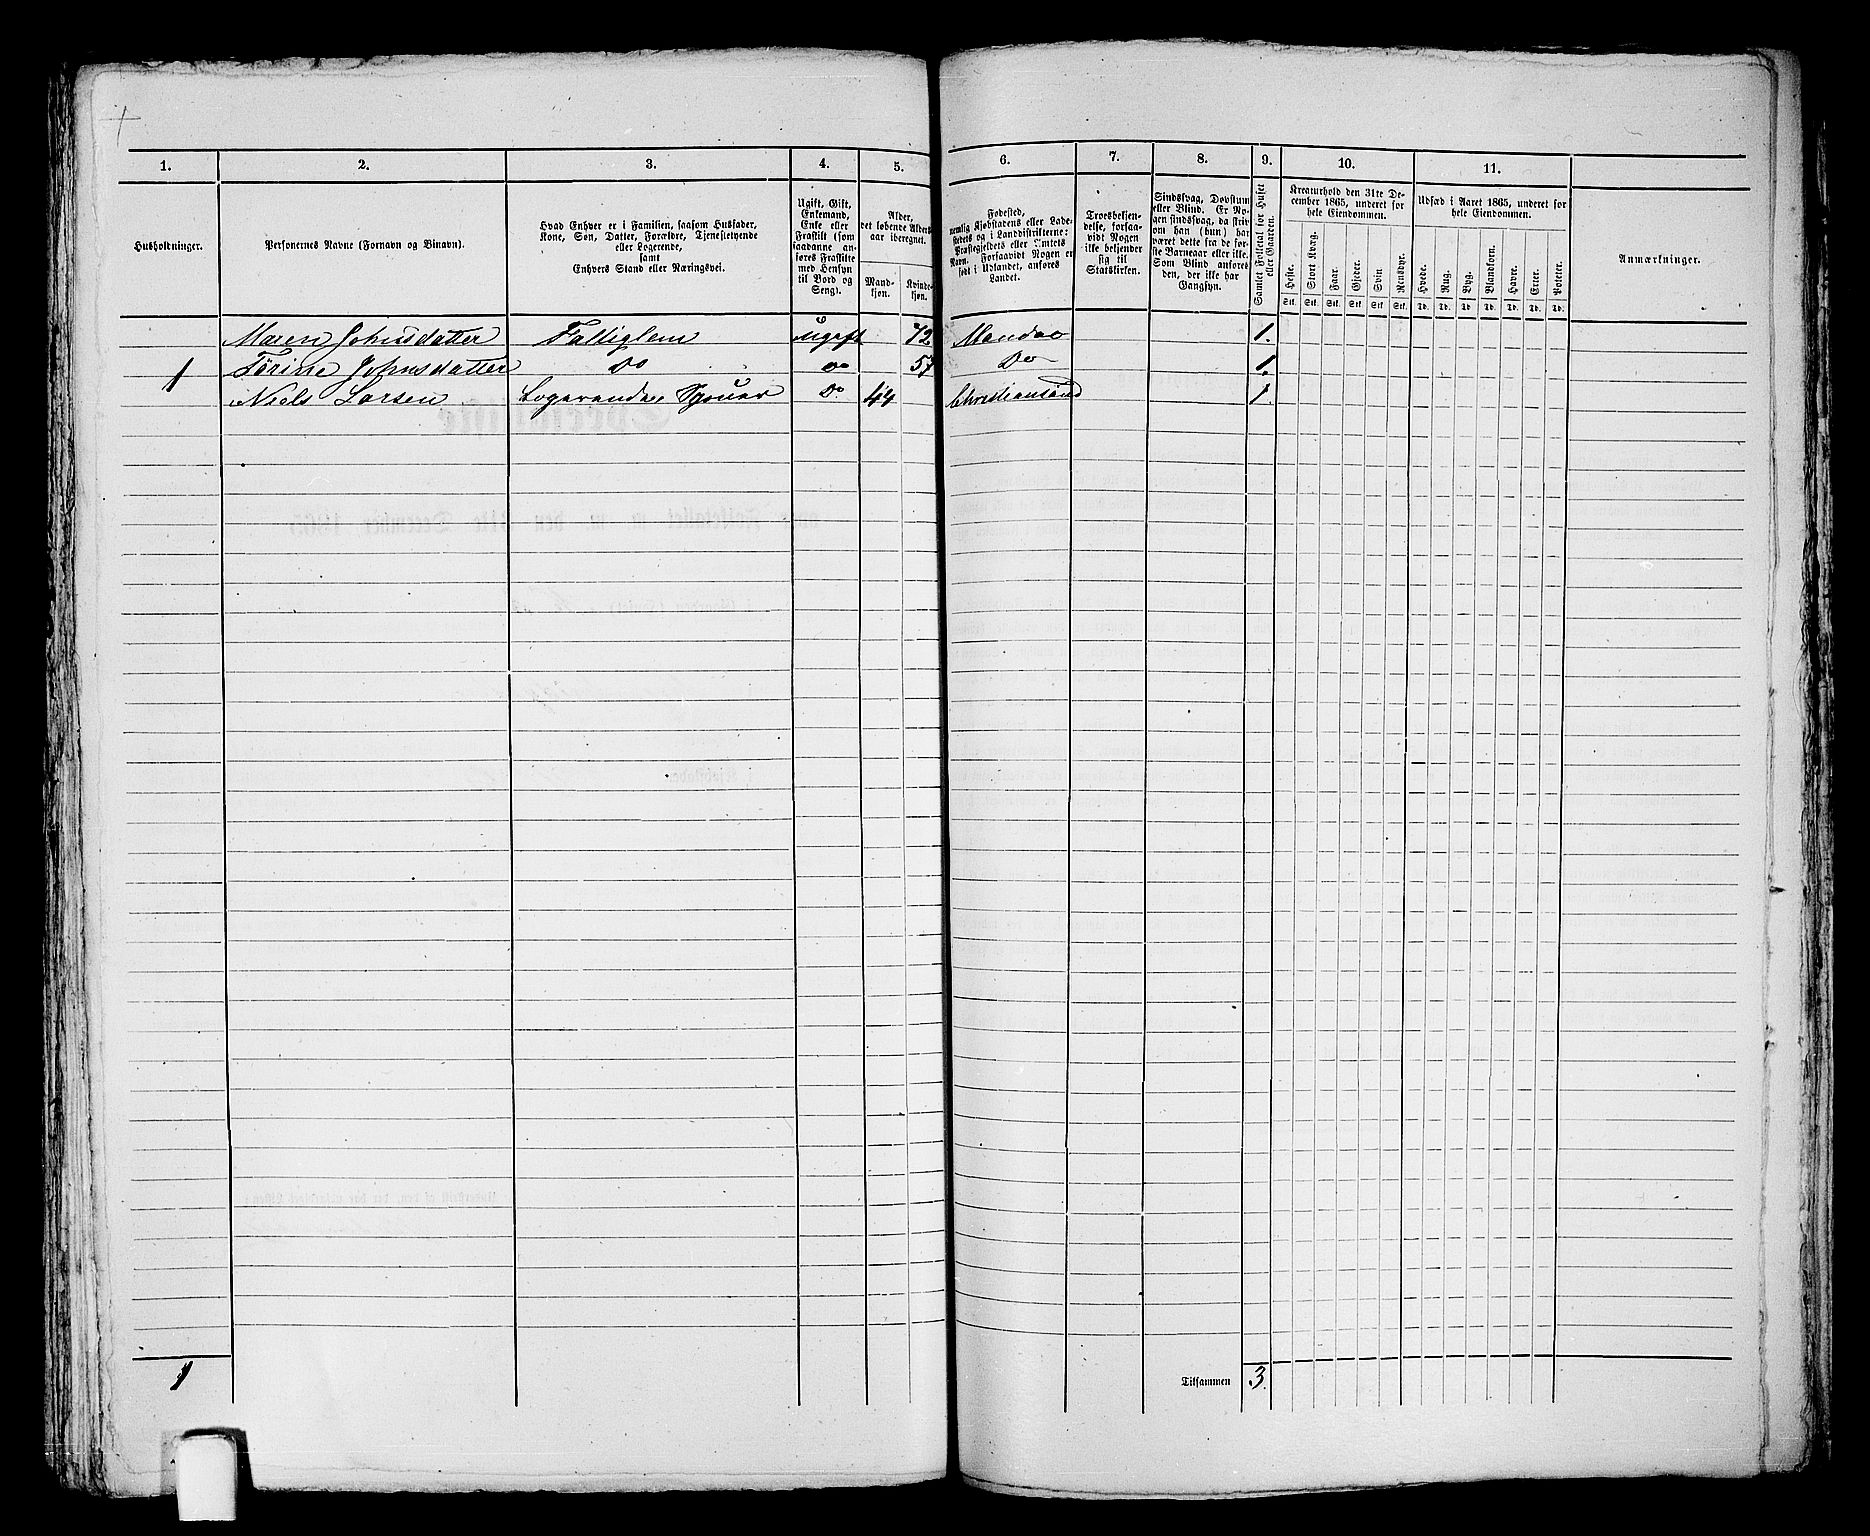 1. 2. 3. 4. 5. 6. 7. 8. 9. 10. 11.
Husholdninger.
Personernes Navne (Fornavn og Binavn).
Hvad Enhver er i Familien, saasom Husfader,
Kone, Søn, Datter, Forældre, Tjenestetyende
eller Logerende,
samt
Enhvers Stand eller Næringsvei.
Ugift, Gift,
Enkemand,
Enke eller
Fraskilt (som
saadanne an-
føres Fraskilte
med Hensyn
til Bord og
Seng).
Alder,
det løbende Alders-
aar iberegnet.
Mand-
kjøn.
Kvinde-
kjøn.
Fødested,
nemlig Kjøbstadens eller Lade-
stedets og i Landdistrikterne:
Præstegjeldets eller Amtets
Navn. Forsaavidt Nogen er
født i Udlandet, anføres
Landet.
Troesbekjen-
delse, forsaa-
vidt Nogen
ikke bekjender
sig til
Statskirken.
Sindssvag, Døvstum
eller Blind. Er No-
gen sindssvag, da skriv
om han (hun) har
været dette fra de før-
ste Barneaar eller ikke.
Som Blind anføres
den, der ikke har
Gangsyn.
Samlet Folketal for Huset
eller Gaarden.
Kreaturhold den 31te De-
cember 1865, underet for
hele Eiendommen.
Heste. Stort Kvæg. Faar. Gjeder. Svin Rensdyr.
Stk. Stk. Stk. Stk. Stk. Stk.
Udsæd i Aaret 1865, underet for
hele Eiendommen.
Hvede. Rug. Byg. Blandkorn. Havre. Erter. Poteter.
Td. Td. Td. Td. Td. Td. Td.
Anmærkninger.
Maren Johnsdatter Fattiglem Ugift 72 Mandal 1.
1 Tørine Johnsdatter Do Do 57 Do 1.
Niels Larsen Do 44 Christiansand 1.
1 Tilsammen 3.